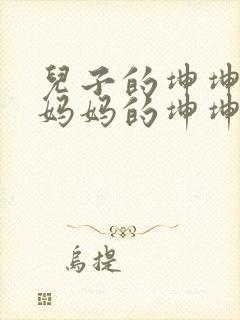 兒子的坤坤
妈妈的坤坤
烏提